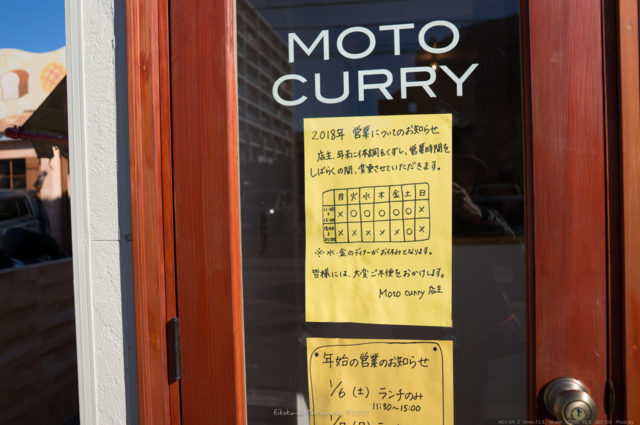 MOTO
CURRY
2018年 営業についてのお知らせ
店主、年末に体調をくずし、営業時間を
しばらくの間、変更させていただきます。
月 火 水 木 金 土 日
11:30 〜 15:00 × ○ ○ ○ ○ ○ ×
× × × × × ○ ×
※ 水、金のディナーがお休みとなります。
皆様には、大変ご不便をおかけします。
Moto curry 店主
年始の営業のお知らせ
1/6 (土) ランチのみ
11:30〜15:00